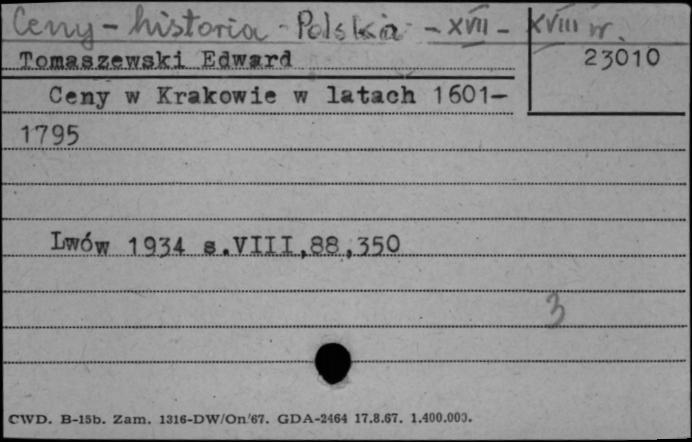 Ceny - historia - Polska - XVII - XVIII w.
Tomaszewski Edward
23010
Ceny w Krakowie w latach 1601-
1795
Lwów 1934 s.VIII,88,350
3
CWD. B-15b. Zam. 1316-DW/On/67. GDA-2464 17.8.67. 1.400.000.